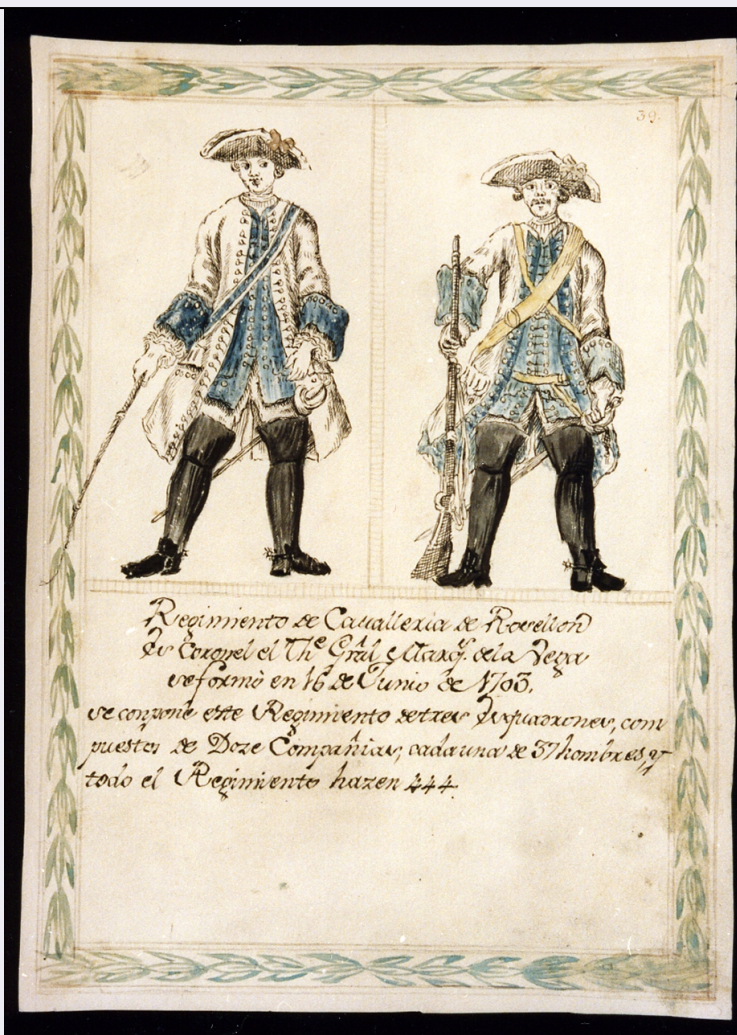 39.
Regimiento de Cavalleria de Rosellon
Es Coronel el Thẽ Grãl Marq.s de la Vega
se formó en 16 de Junio de 1703.
se conpone este Regimiento de tres Esquadrones, com
puestos de Doze Compañias, cada una de 37 hombres, y
todo el Regimiento hazen 444.